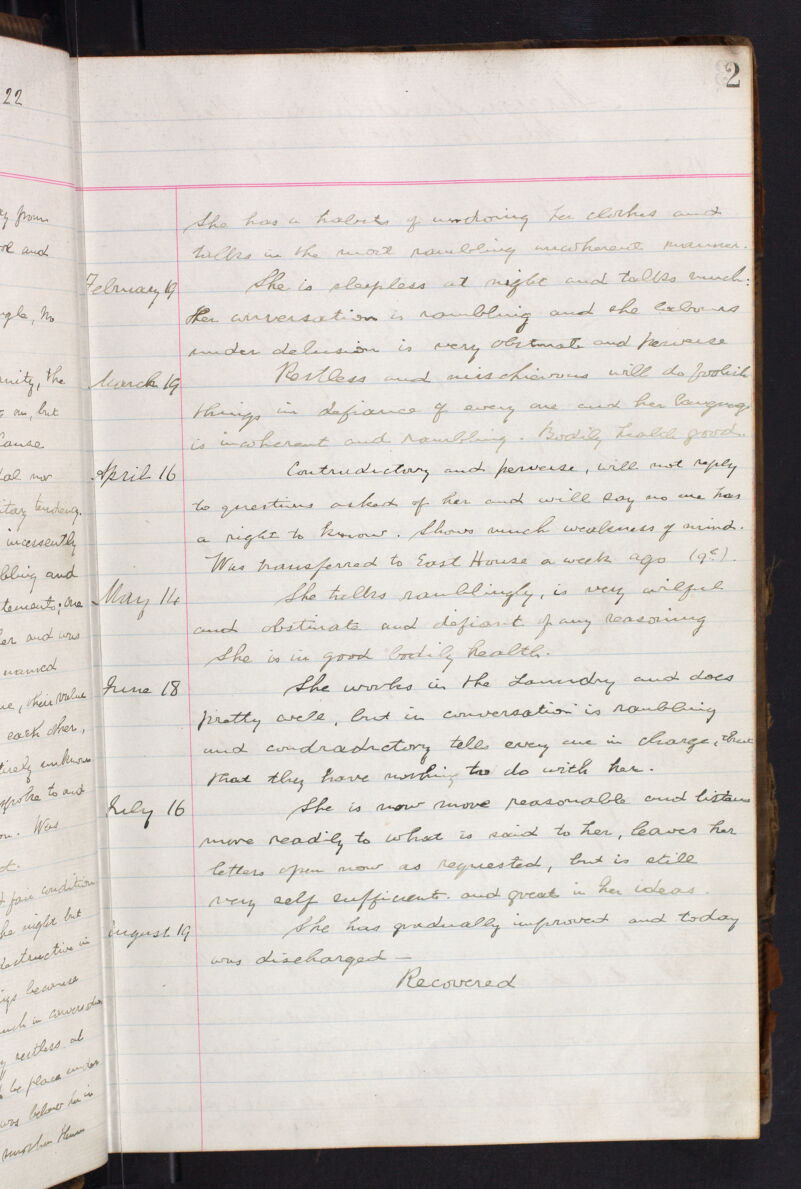 22
2
ay from
and
single, No
unity, the
but
Cause
nor
itary tendency.
incessently
bling and
tements; one
her and was
named
ue, their value
each other,
tirely unknown
spoke to and
Was
fair condition
the night but
destructive in
ings because
much in conversation
restless at
be place under
She has a habits of undoing her clothes and
talks in the most rambling incoherent manner.
February 19 She is sleepless at night and talks much:
Her conversation is rambling and she labours
under delusion is very obstinate and perverse
March 19 Restless and mischievous will do foolish
things in defiance of every one and her language
is incoherent and rambling. Bodily health good.
April 16 Contradictory and perverse, will not reply
to questions asked of her and will say no one has
a right to know. Shows much weakness of mind.
Was transferred to East House a week ago
May 14 She talks ramblingly, is very wilful
and obstinate and defiant of any reasoning
She is in good bodily health.
June 18 She works in the Laundry and does
pretty well, but in conversation is rambling
and condradictory tells every one in charge,
that they have nothing to do with her.
July 16 She is now more reasonable and listens
more readily to what is said to her, leaves her
letters open now as requested, but is still
very self sufficient. and great in her ideas.
August 19 She has gradually improved and today
was discharged —
Recovered